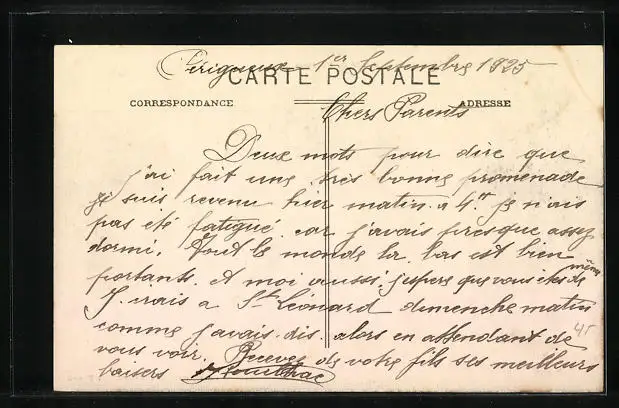 Périgueux 1er Septembre 1925
CARTE POSTALE
CORRESPONDANCE
ADRESSE
Chers Parents
Deux mots pour dire que
j'ai fait une très bonne promenade
je suis revenu hier matin a 4h je n'ais
pas été fatigué car j'avais presque assez
dormi. Tout le monde la bas est bien
portants et moi aussi j'espere que vous êtes de même
J'irais a St Léonard dimenche matin
comme j'avais dis alors en attendant de
vous voir. Recevez de votre fils ses meilleurs
baisers
45